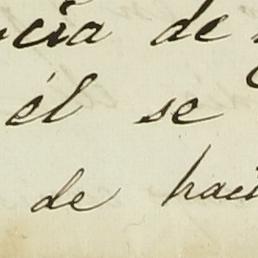 ncia de
él se
de haci